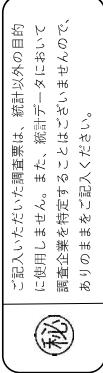 秘
ご記入いただいた調査票は、統計以外の目的
に使用しません。また、統計データにおいて
調査企業を特定することはございませんので、
ありのままをご記入ください。